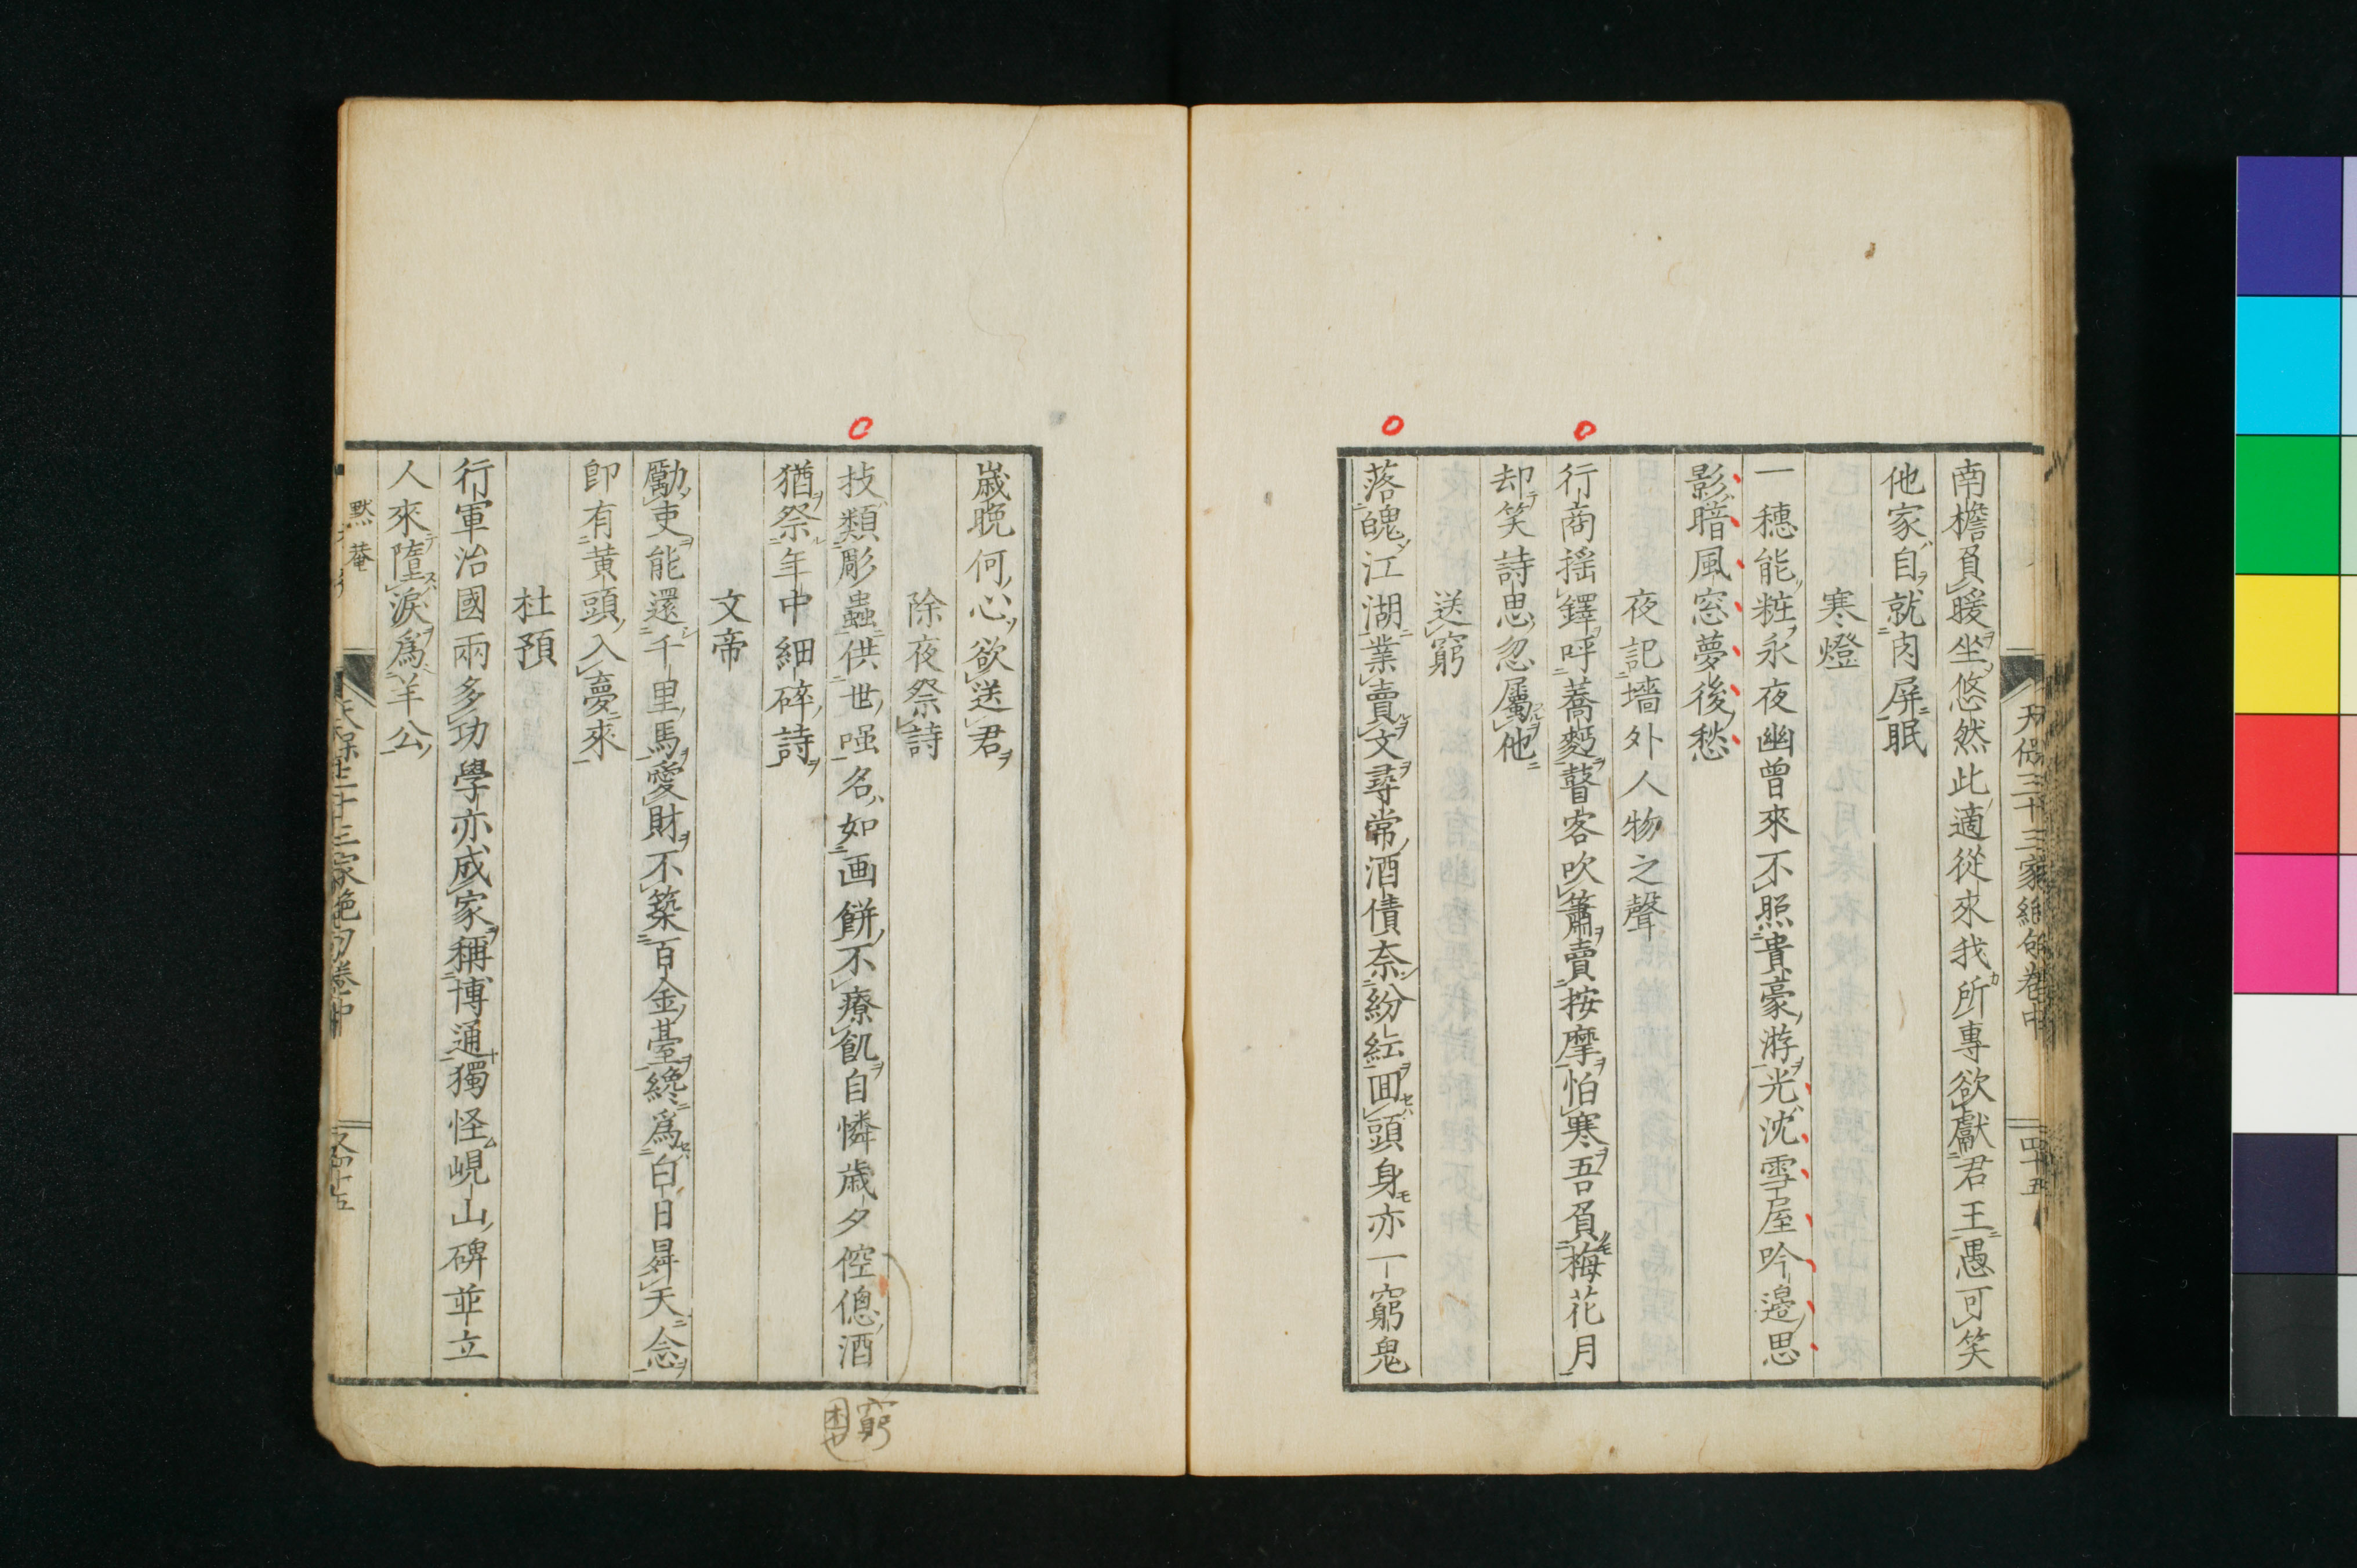 天保三十三家絶句卷中
四十五
南檐負暖坐悠然此適從來我所專欲獻君王愚可笑
他家自就肉屏眠
寒燈
一穗能粧永夜幽曾來不照貴豪游光沈雪屋吟邊思
影暗風窓夢後愁
夜記墻外人物之聲
行商搖鐸呼蕎麪瞽客吹簫賣按摩怕寒吾負梅花月
却笑詩思忽屬他
送窮
落魄江湖業賣文尋常酒債奈紛紜囬頭身亦一窮鬼
歳晩何心欲送君
除夜祭詩
技類彫蟲供世嗤名如画餅不療飢自憐歳夕倥傯酒
猶祭年中細碎詩
文帝
勵吏能還千里馬愛財不築百金臺纔爲白日昇天念
卽有黄頭入夢來
杜預
行軍治國兩多功學亦成家稱博通獨怪峴山碑並立
人來墮淚爲羊公
默菴
天保三十三家絶句卷中
又四十五
窮